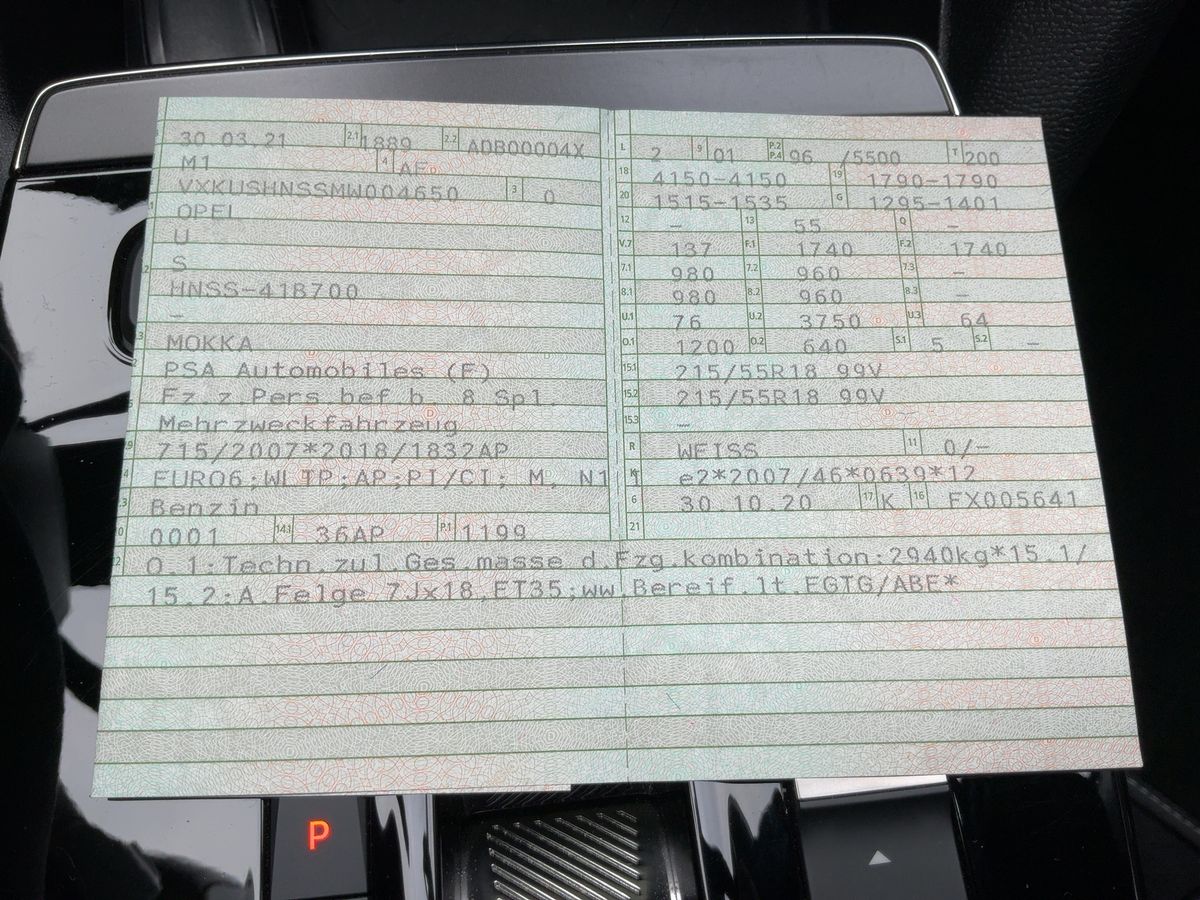 30.03.21 2.1 1889 2.2 ADB00004X
M1 4 AF
VXKUSHNSSMW004650 3 0
OPEL
U
S
HNSS-41B700
—
MOKKA
PSA Automobiles (F)
Fz.z.Pers.bef.b. 8 Spl.
Mehrzweckfahrzeug
715/2007*2018/1832AP
EURO6;WLTP;AP;PI/CI; M, N1 I
Benzin
0001 14.1 36AP P.1 1199
L 2 9 01 P.2 P.4 96 /5500 T 200
18 4150-4150 19 1790-1790
20 1515-1535 G 1295-1401
12 — 13 55 Q —
V.7 137 F.1 1740 F.2 1740
7.1 980 7.2 960 7.3 —
8.1 980 8.2 960 8.3 —
U.1 76 U.2 3750 U.3 64
O.1 1200 O.2 640 S.1 5 S.2 —
15.1 215/55R18 99V
15.2 215/55R18 99V
15.3 —
R WEISS 11 0/-
K e2*2007/46*0639*12
6 30.10.20 17 K 16 FX005641
21
O.1:Techn.zul.Ges.masse d.Fzg.kombination:2940kg*15.1/
15.2:A.Felge 7Jx18,ET35;ww.Bereif.lt.EGTG/ABE*
P